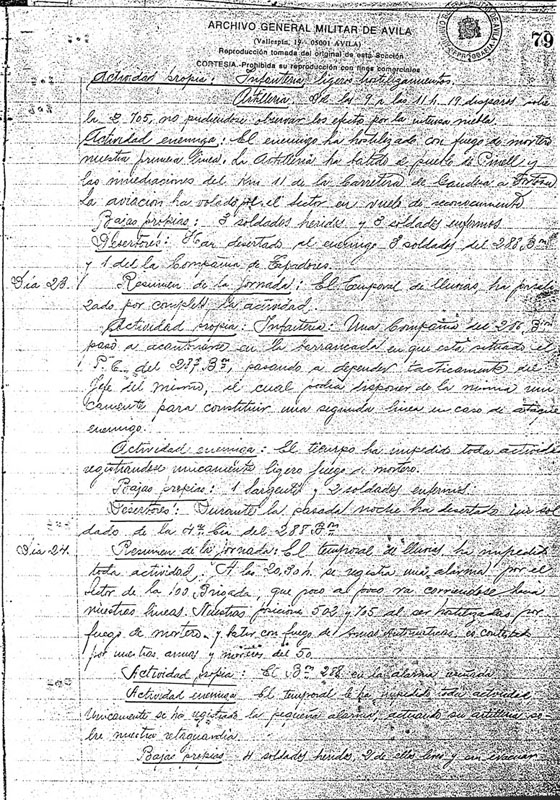 ARCHIVO GENERAL MILITAR DE AVILA
(Vallespin, 19 - 05001 AVILA)
Reproducción tomada del original de esta Sección
CORTESIA - Prohibida su reproducción con fines comerciales
79
Actividad propia: Infanteria ligeros hostilizamientos.
Artilleria: De las 9 a las 11 h. 19 disparos sobre
la 705, no pudiendose observar los efectos por la intensa niebla.
Actividad enemiga: El enemigo ha hostilizado con fuego de mortero
nuestra primera linea. La Artilleria ha batido el pueblo de Pinell y
las inmediaciones del Km 11 de la Carretera de Gandesa a Tortosa
La aviacion ha volado por el sector en vuelo de reconocimiento
Bajas propias: 8 soldados heridos y 8 soldados enfermos.
Desertores: Han desertado al enemigo 8 soldados del 288, Bon
y 1 del la Compañia de Zapadores.
Dia 23.
Resumen de la jornada: El temporal de lluvias, ha
por completo, la actividad.
Actividad propia: Infanteria: Una Compañia del 286, Bon
pasó a acantonarse en la barrancada en que está situado el
P.C. del 287º Bon, pasando a depender tacticamente del
Jefe del mismo, el cual podia disponer de la misma uni
camente para constituir una segunda linea en caso de ataque
enemigo.
Actividad enemiga: El tiempo ha impedido toda actividad
registrandose unicamente ligero fuego de mortero.
Bajas propias: 1 Sargento y 2 soldados enfermos.
Desertores: Durante la pasada noche ha desertado un sol
dado de la 4ª Cia del 288 Bon
Dia 24.
Resumen de la jornada: El temporal de lluvias, ha impedido
toda actividad. A las 20,30 h. se registra una alarma por el
Sector de la 100 Brigada, que poco a poco va corriendose hacia
nuestras lineas. Nuestras posiciones 502 y 705 al ser hostilizadas por
fuego de mortero y batir con fuego de armas automaticas, es contestado
por nuestras armas y morteros del 50.
Actividad propia: El Bon 288 en la alarma
Actividad enemiga: El temporal le ha impedido toda actividad
Unicamente se ha registrado la pequeña alarma, actuando su artilleria so
bre nuestra retaguardia.
Bajas propias: 4 soldados heridos, 2 de ellos leves y sin evacuar